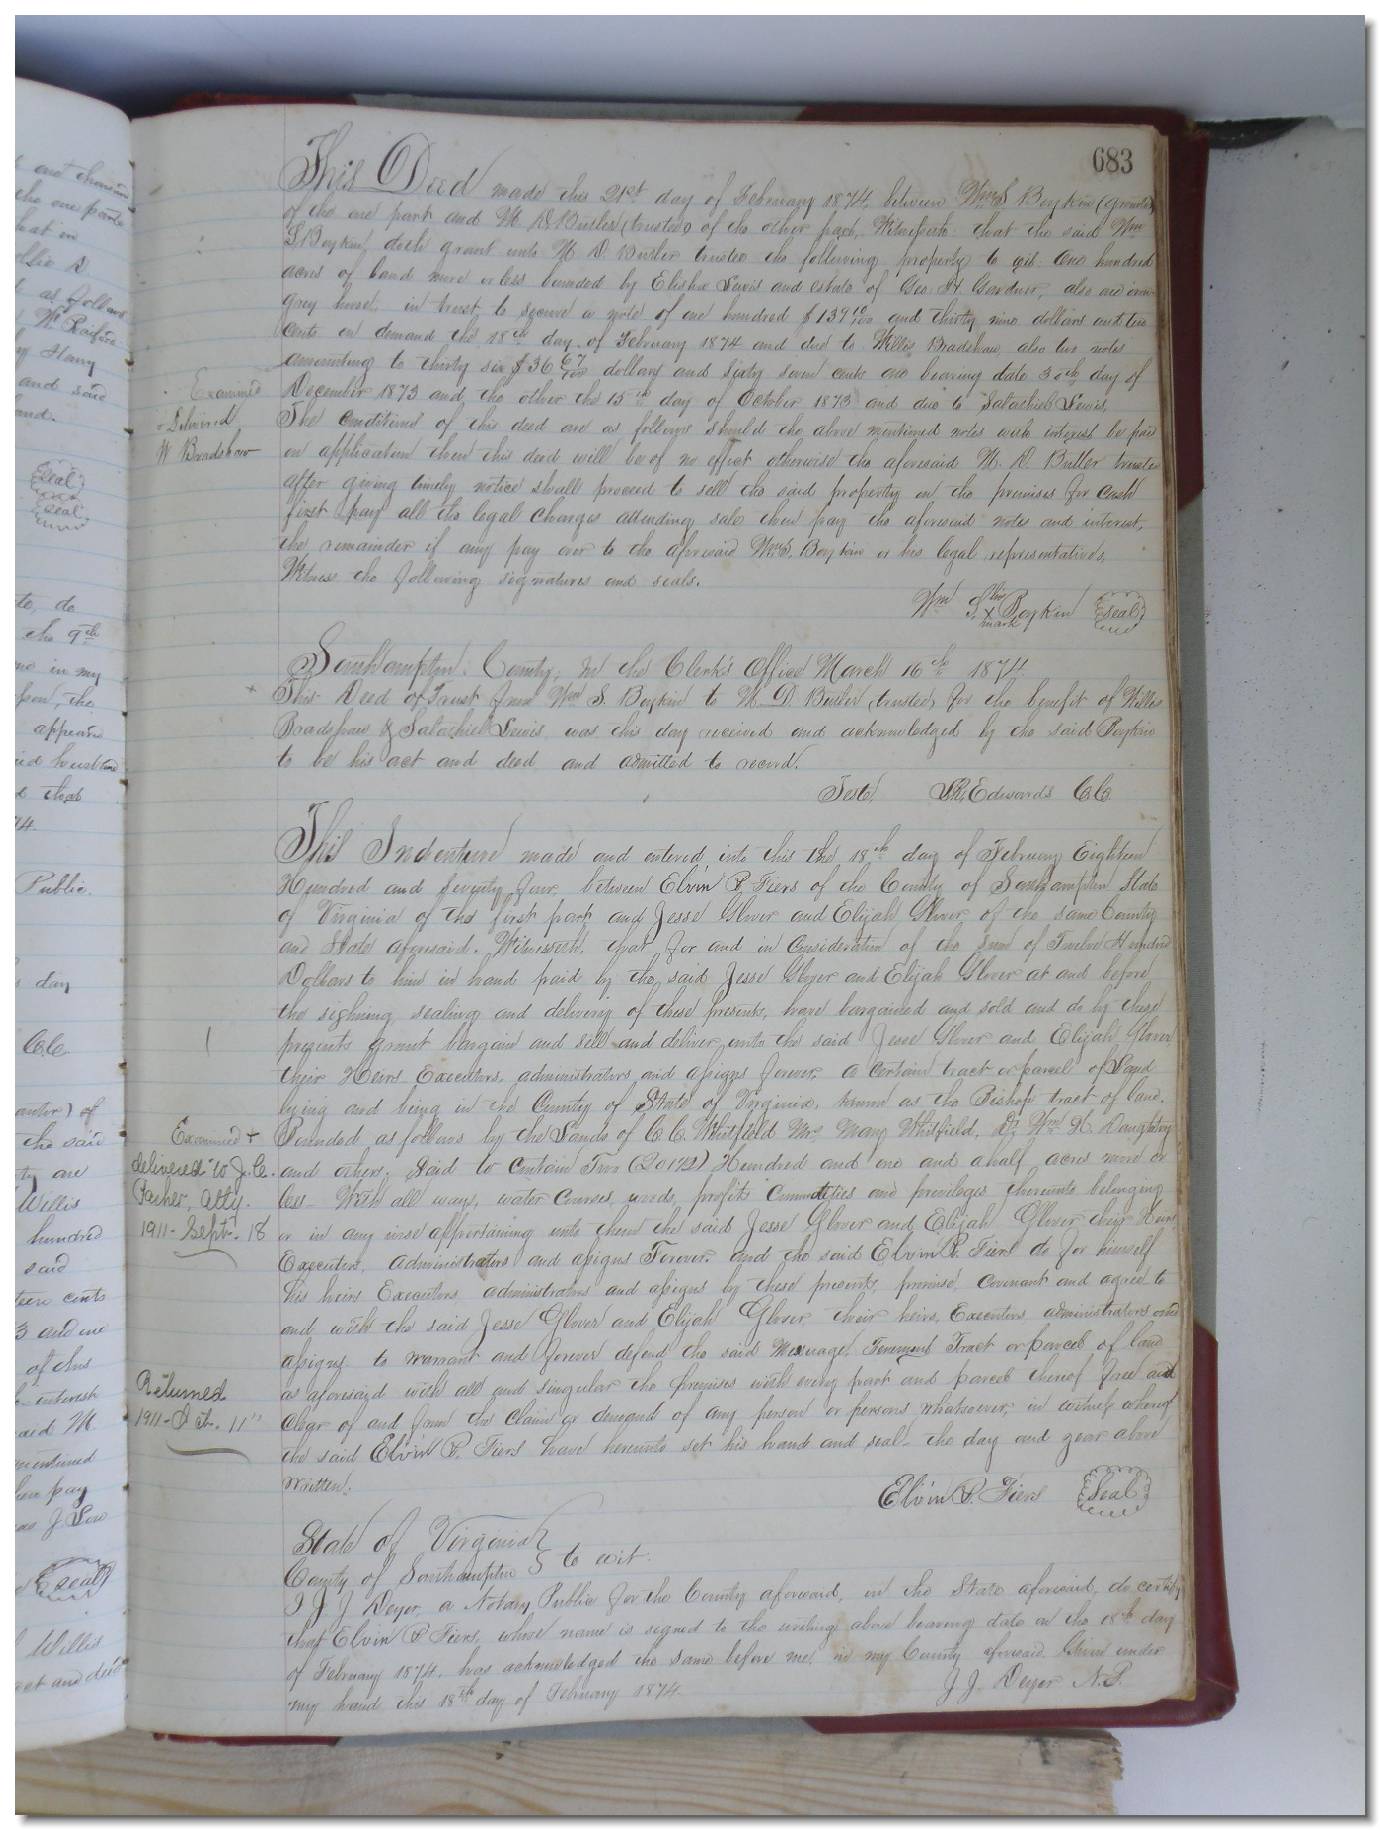 683
This Deed made this 21st day of February 1874, between Wm S. Boykin (grantor)
of the one part and M. D. Butler (trustee) of the other part, Witnesseth that the said Wm
S. Boykin, doth grant unto M. D. Butler trustee the following property to wit: One hundred
acres of land more or less bounded by Elisha Lewis and estate of Geo. H. Gardner, also one
gray horse, in trust, to secure a note of one hundred $139 10/100 and thirty nine dollars and ten
cents on demand the 18th day of February 1874 and due to Willis Bradshaw, also two notes
amounting to thirty six $36 67/100 dollars and sixty seven cents one bearing date 30th day of
December 1873 and the other the 15th day of October 1873 and due to Salathiel Lewis,
The conditions of this deed are as follows should the above mentioned notes with interest be paid
on application then this deed will be of no effect otherwise the aforesaid M. D. Butler trustee
after giving timely notice shall proceed to sell the said property on the premises for cash
first pay all the legal charges attending sale then pay the aforesaid notes and interest,
the remainder if any pay over to the aforesaid Wm S. Boykin or his legal representatives,
Witness the following signatures and seals.
Examined
& Delivered
W Bradshaw
Wm S. his X mark Boykin Seal
Southampton County, In the Clerk's Office March 16th 1874
This Deed of Trust from Wm S. Boykin to M. D. Butler, trustee, for the benefit of Willis
Bradshaw & Salathiel Lewis, was this day received and acknowledged by the said Boykin
to be his act and deed and admitted to record.
Teste, L.R. Edwards C.C.
This Indenture made and entered into this the 18th day of February Eighteen
Hundred and Seventy four, between Elvin P. Fiers of the County of Southampton State
of Virginia of the first part, and Jesse Glover and Elijah Glover, of the same County
and State aforesaid. Witnesseth, that for and in Consideration of the sum of Twelve Hundred
Dollars to him in hand paid by the said Jesse Glover and Elijah Glover at and before
the sighning, sealing and delivery of these presents, have bargained and sold and do by these
presents grant bargain and sell and deliver unto the said Jesse Glover and Elijah Glover
their Heirs Executors, administrators and assigns forever, a certain tract or parcel of Land
lying and being in the County of State of Virginia, known as the Bishop tract of land.
Bounded as follows by the Lands of C. C. Whitfield Mrs Mary Whitfield, Dr Wm H. Daughtry
and others. Said to contain Two (201 1/2) Hundred and one and a half acres more or
less - With all ways, water Courses, woods, profits Commodities and privileges thereunto belonging
or in any wise appertaining unto them the said Jesse Glover and Elijah Glover their Heirs
Executors, administrators and assigns Forever. and the said Elvin P. Fiers do for himself
his heirs Executors administrators and assigns by these presents, promise, Covenant and agree to
and with the said Jesse Glover and Elijah Glover their heirs, Executors administrators and
assigns to warrant and forever defend the said Messuage Tenement Tract or parcel of land
as aforesaid with all and singular the premises with every part and parcel thereof free and
clear of and from the claim or demand of any person or persons whatsoever, in witness whereof
the said Elvin P. Fiers have hereunto set his hand and seal - the day and year above
written.
Examined &
delivered to J. C.
Parker, Atty.
1911 - Sept. 18
Returned
1911 - Oct. 11"
Elvin P. Fiers Seal
State of Virginia
County of Southampton to wit.
I J J Deyer a Notary Public for the County aforesaid, in the State aforesaid, do certify
that Elvin P. Fiers, whose name is signed to the writing above bearing date on the 18th day
of February 1874. has acknowledged the same before me in my County aforesaid. Given under
my hand this 18th day of February 1874.
J J. Deyer N.P.